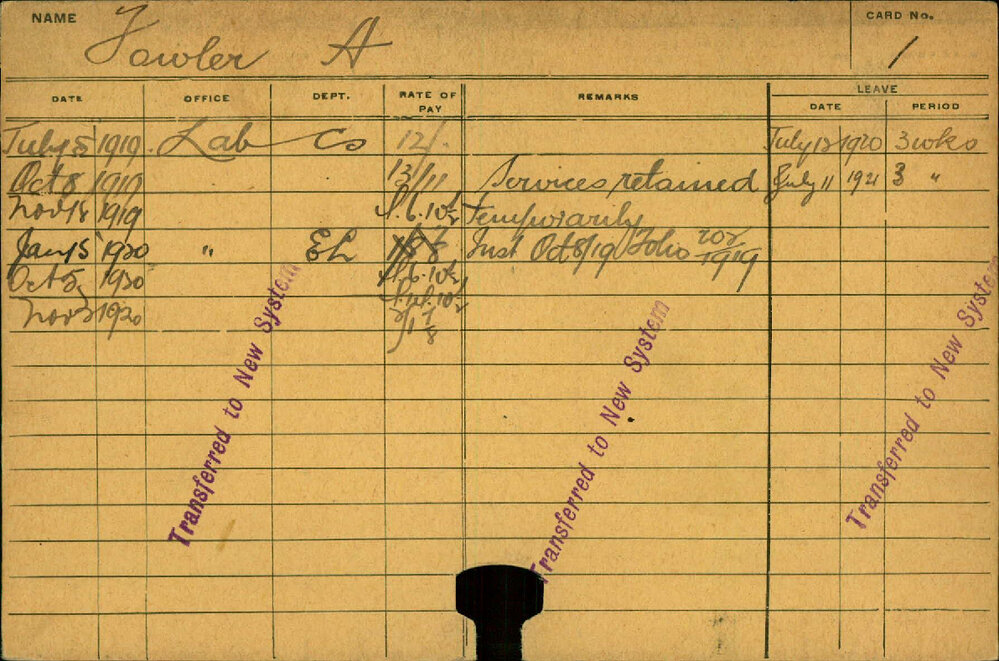 NAME Fowler A CARD No. 1
LEAVE
DATE OFFICE DEPT. RATE OF PAY REMARKS DATE PERIOD
July 5 1919. Lab Co 12/. July 12 1920 3 wks
Oct 8 1919 13/11 Services retained July 11 1921 3 "
Nov 18 1919 temporarily
Jany 5 1920 " EL Inst Oct 8/19 Folio 202/1919
Oct 5 1920
Nov 2 1920
Transferred to New System
Transferred to New System
Transferred to New System